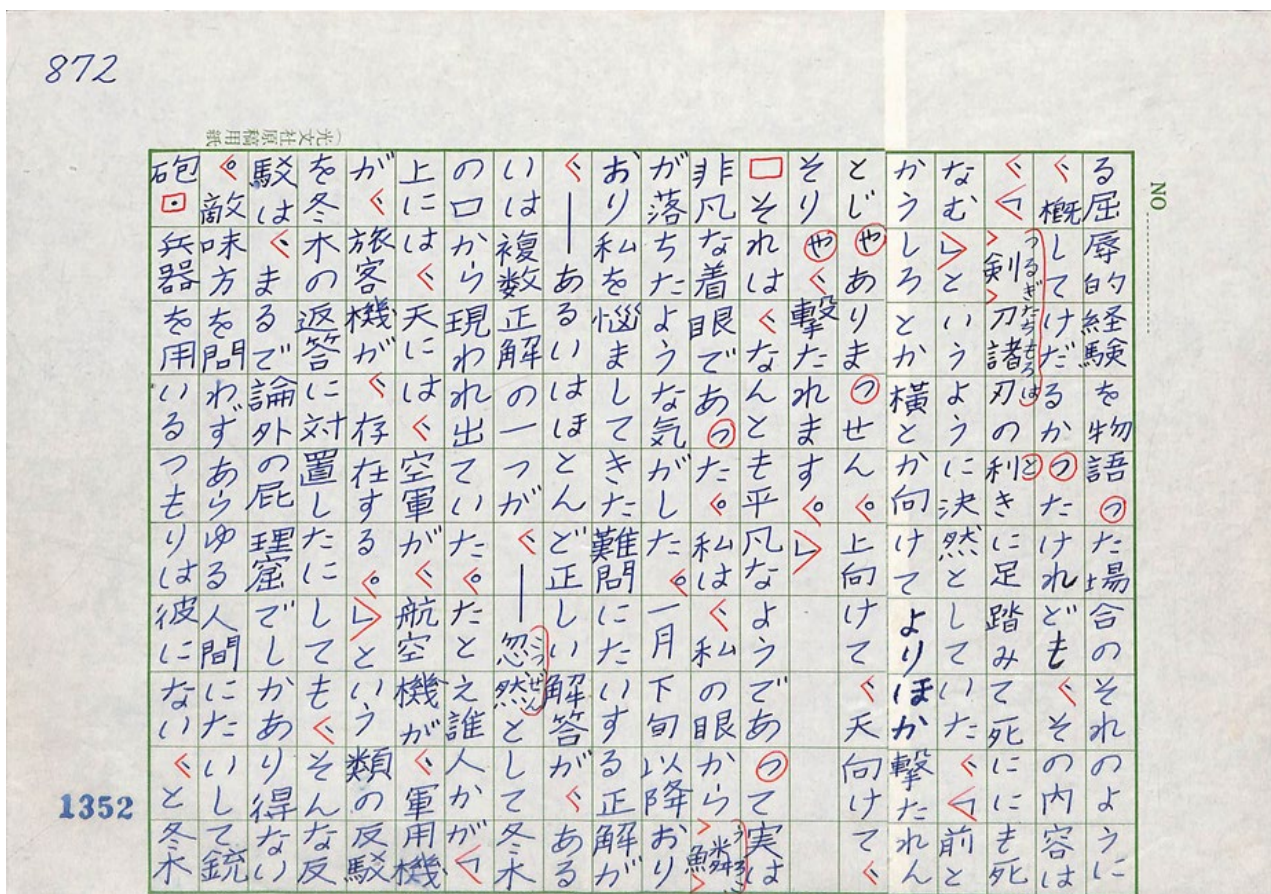 872
NO
る屈辱的経験を物語った場合のそれのように
、概してけだるかったけれども、その内容は
つるぎたちもろは と
、「剣刀諸刃の利きに足踏みて死ににも死
なむ」というように決然としていた、「前と
かうしろとか横とか向けてよりほか撃たれん
とじゃありまっせん。上向けて、天向けて、
そりゃ、撃たれます。」
それは、なんとも平凡なようであって実は
うろこ
非凡な着眼であった。私は、私の眼から鱗
が落ちたような気がした。一月下旬以降おり
おり私を悩ましてきた難問にたいする正解が
、——あるいはほとんど正しい解答が、ある
こつぜん
いは複数正解の一つが、——忽然として冬木
の口から現われ出ていた。たとえ誰人かが「
上には、天には、空軍が、航空機が、軍用機
が、旅客機が、存在する。」という類の反駁
を冬木の返答に対置したにしても、そんな反
駁は、まるで論外の屁理窟でしかあり得ない
。敵味方を問わずあらゆる人間にたいして銃
砲・兵器を用いるつもりは彼にない、と冬木
(光文社原稿用紙
1352